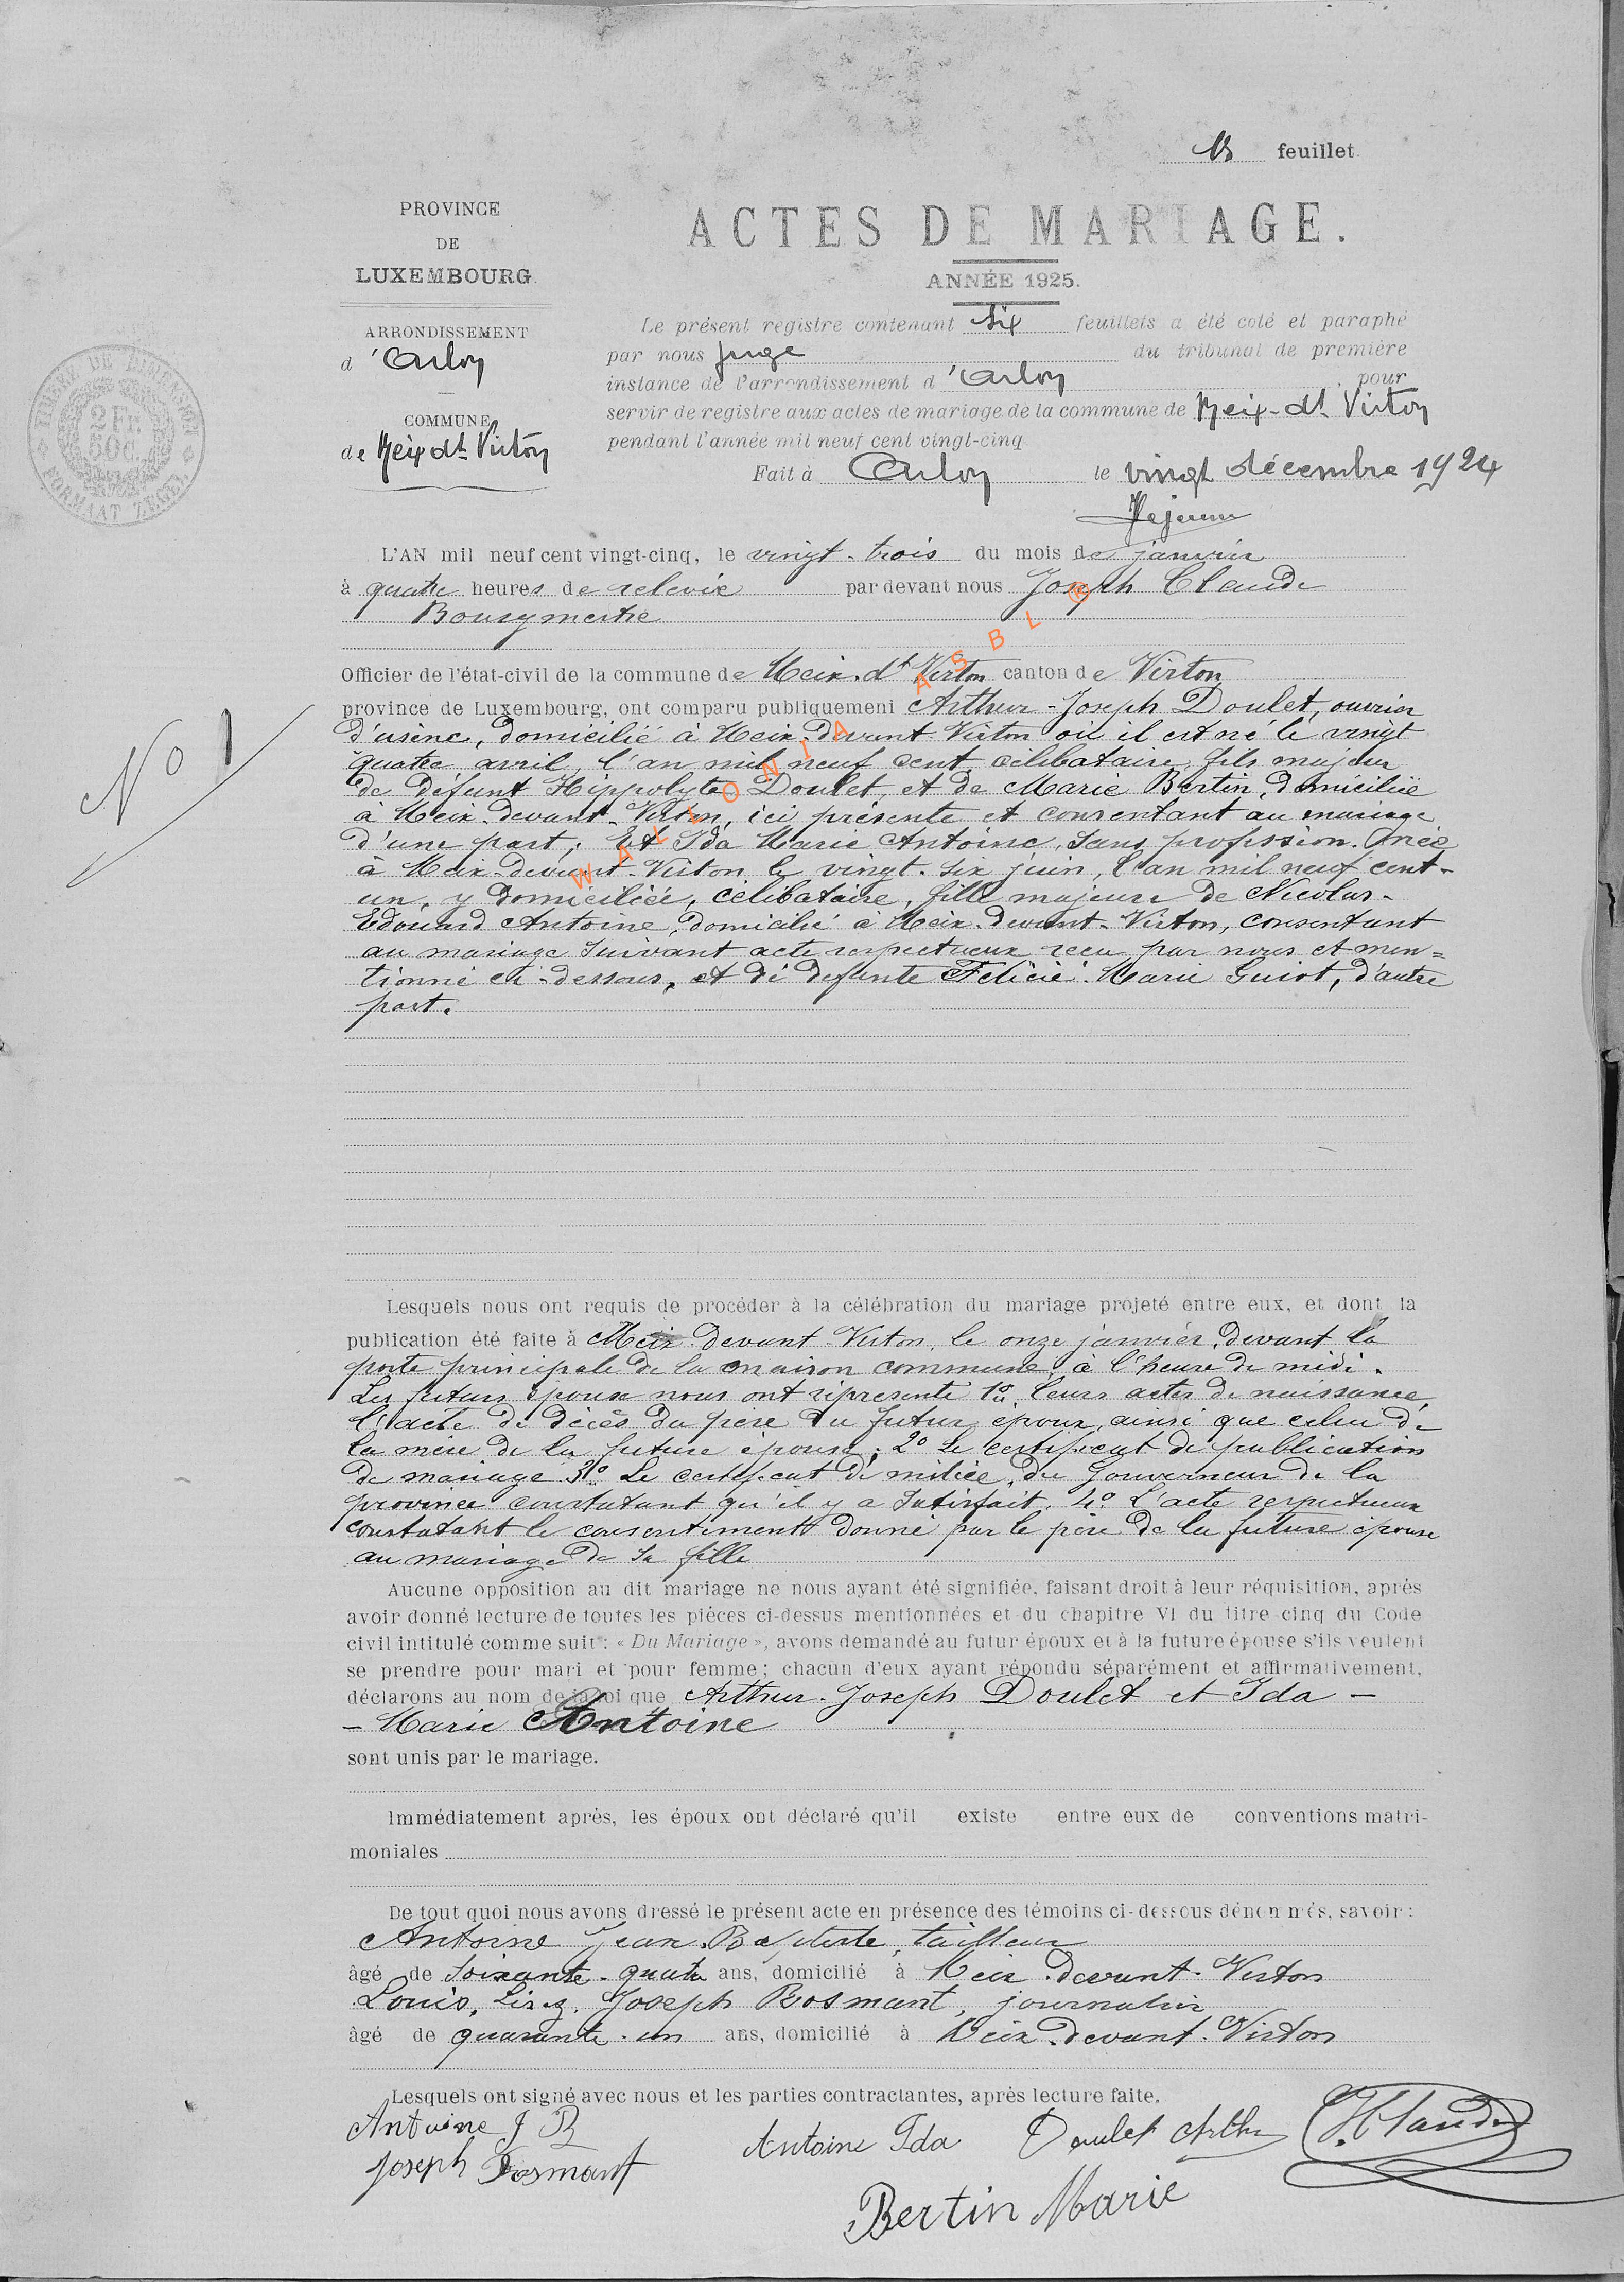 feuillet
PROVINCE
DE
LUXEMBOURG
ARRONDISSEMENT
d'Arlon
COMMUNE
de Meix-dt Virton
TIMBRE DE DIMENSION
2 FR.
50 C.
FORMAAT ZEGEL
ACTES DE MARIAGE.
ANNÉE 1925.
Le présent registre contenant six feuillets a été coté et paraphé
par nous Juge du tribunal de première
instance de l'arrondissement d'Arlon, pour
servir de registre aux actes de mariage de la commune de Meix-dt Virton
pendant l'année mil neuf cent vingt-cinq
Fait à Arlon le vingt décembre 1924
No 1
L'AN mil neuf cent vingt-cinq, le vingt-trois du mois de janvier
à quatre heures de relevée par devant nous Joseph Claude
Bourgmestre
Officier de l'état-civil de la commune de Meix-dt Virton canton de Virton
province de Luxembourg, ont comparu publiquement Arthur-Joseph Doulet, ouvrier
d'usine, domicilié à Meix-devant-Virton où il est né le vingt
quatre avril, l'an mil neuf cent, célibataire, fils majeur
de défunt Hippolyte Doulet, et de Marie Bertin, domiciliée
à Meix-devant-Virton, ici présente et consentant au mariage
d'une part; Et Ida Marie Antoine, sans profession, née
à Meix-devant-Virton le vingt-six juin, l'an mil neuf cent-
un, y domiciliée, célibataire, fille majeure de Nicolas-
Edouard Antoine, domicilié à Meix-devant-Virton, consentant
au mariage suivant acte respectueux reçu par nous et men=
tionné ci-dessous, et de défunte Félicie-Marie Guiot, d'autre
part.
WALLONIA ASBL ©
Lesquels nous ont requis de procéder à la célébration du mariage projeté entre eux, et dont la
publication été faite à Meix-devant-Virton, le onze janvier, devant la
porte principale de la maison commune, à l'heure de midi.
Les futurs époux nous ont représenté 1o leurs actes de naissance,
l'acte de décès du père du futur époux, ainsi que celui de
la mère de la future épouse; 2o Le certificat de publication
de mariage. 3o Le certificat de milice, du Gouverneur de la
province constatant qu'il y a satisfait. 4o L'acte respectueux
constatant le consentement donné par le père de la future épouse
au mariage de sa fille
Aucune opposition au dit mariage ne nous ayant été signifiée, faisant droit à leur réquisition, après
avoir donné lecture de toutes les pièces ci-dessus mentionnées et du chapitre VI du titre cinq du Code
civil intitulé comme suit : « Du Mariage », avons demandé au futur époux et à la future épouse s'ils veulent
se prendre pour mari et pour femme; chacun d'eux ayant répondu séparément et affirmativement,
déclarons au nom de la loi que Arthur-Joseph Doulet et Ida -
- Marie Antoine
sont unis par le mariage.
Immédiatement après, les époux ont déclaré qu'il existe entre eux de conventions matri-
moniales
De tout quoi nous avons dressé le présent acte en présence des témoins ci-dessous dénommés, savoir :
Antoine Jean-Baptiste, tailleur
âgé de soixante-quatre ans, domicilié à Meix-devant-Virton
Louis, Joseph Rosmant, journalier
âgé de quarante-un ans, domicilié à Meix-devant-Virton
Lesquels ont signé avec nous et les parties contractantes, après lecture faite.
Antoine J B
Joseph Rosmant
Antoine Ida
Doulet Arthur
J. Claude
Bertin Marie